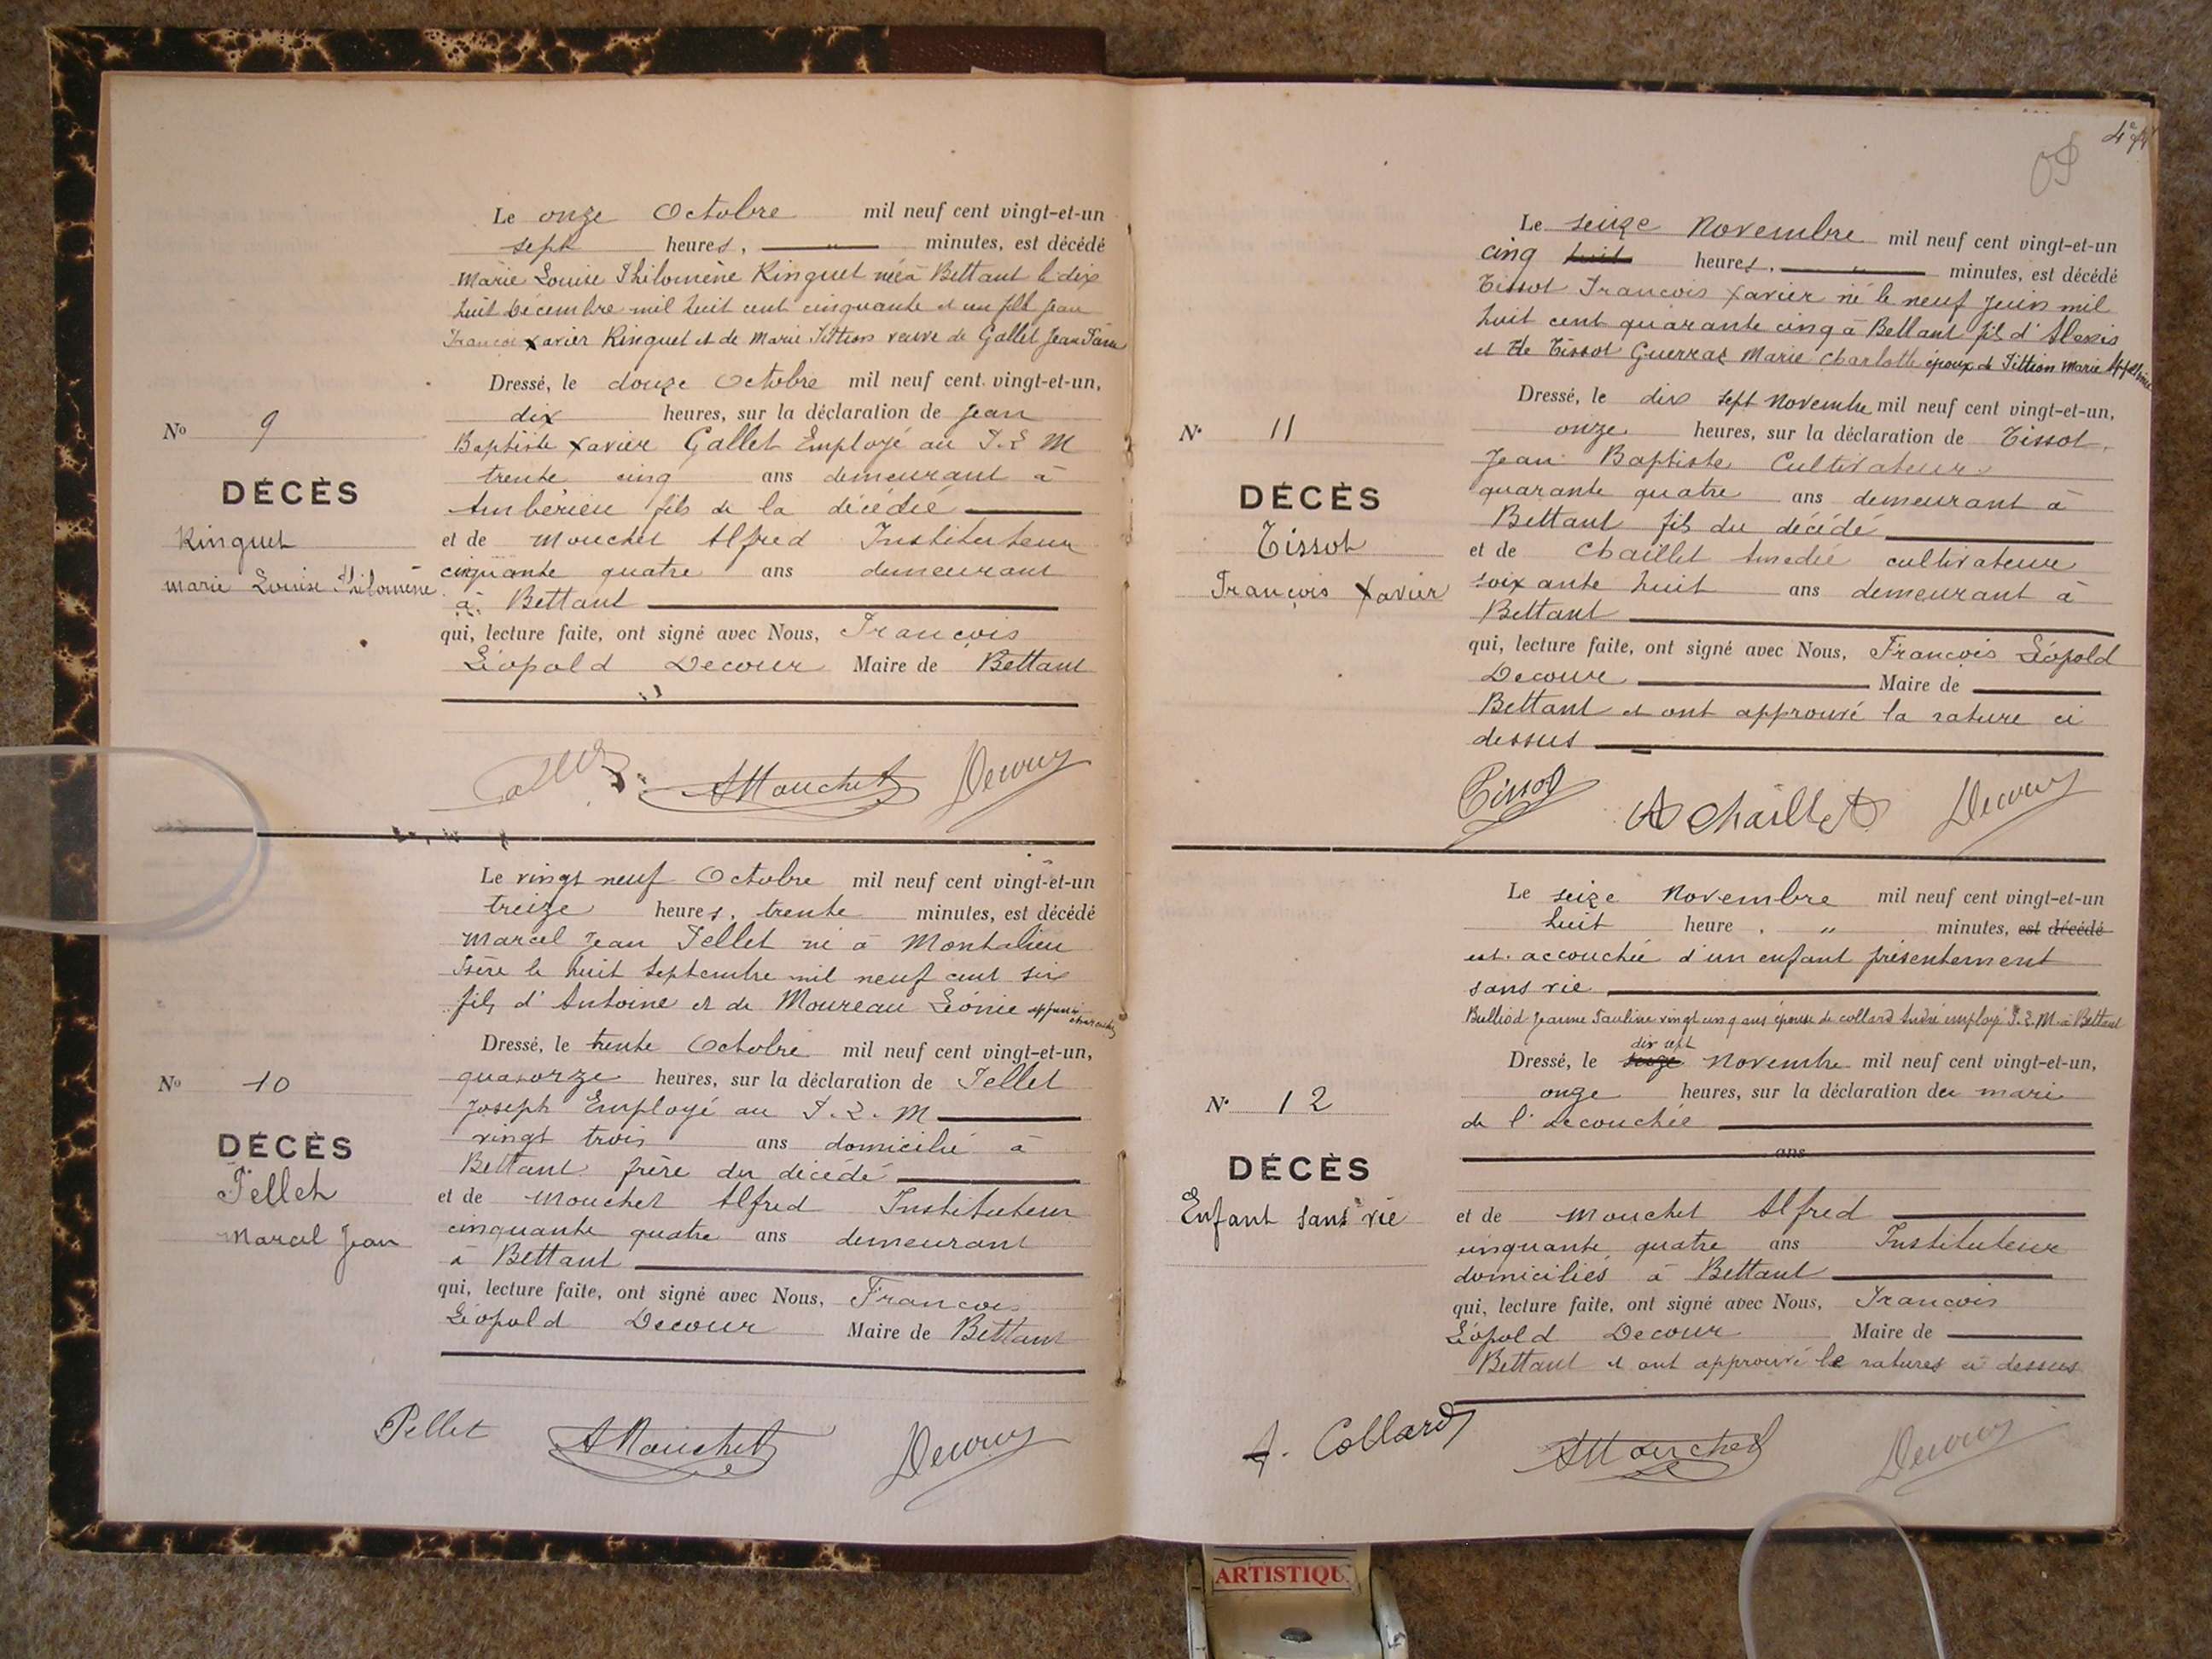 Le onze Octobre mil neuf cent vingt-et-un
sept heures, " minutes, est décédé
Marie Louise Philomène Ringuet née à Bettant le dix
huit Décembre mil huit cent cinquante et un fille Jean
François Xavier Ringuet et de Marie Pittion veuve de Gallet Jean
Dressé, le douze Octobre mil neuf cent vingt-et-un,
dix heures, sur la déclaration de Jean
Baptiste Xavier Gallet Employé au P.L M
trente cinq ans demeurant à
Ambérieu fils de la décédée
et de Mouchet Alfred Instituteur
cinquante quatre ans demeurant
à Bettant
qui, lecture faite, ont signé avec Nous, François
Léopold Decour Maire de Bettant
No 9
DÉCÈS
Ringuet
Marie Louise Philomène
AMouchet Decour
Le vingt neuf Octobre mil neuf cent vingt-et-un
treize heures, trente minutes, est décédé
Marcel Jean Pellet né à Montalieu
Isère le huit Septembre mil neuf cent six
fils d'Antoine et de Moureau Léonie
Dressé, le trente Octobre mil neuf cent vingt-et-un,
quatorze heures, sur la déclaration de Pellet
Joseph Employé au P.L.M
vingt trois ans domicilié à
Bettant frère du décédé
et de Mouchet Alfred Instituteur
cinquante quatre ans demeurant
à Bettant
qui, lecture faite, ont signé avec Nous, François
Léopold Decour Maire de Bettant
No 10
DÉCÈS
Pellet
Marcel Jean
Pellet AMouchet Decour
Le seize Novembre mil neuf cent vingt-et-un
cinq huit heures, " minutes, est décédé
Tissot François Xavier né le neuf Juin mil
huit cent quarante cinq à Bettant fils d'Alexis
et de Tissot Guerraz Marie Charlotte époux de Pittion Marie
Dressé, le dix sept Novembre mil neuf cent vingt-et-un,
onze heures, sur la déclaration de Tissot
Jean Baptiste Cultivateur
quarante quatre ans demeurant à
Bettant fils du décédé
et de Chaillet Amédée cultivateur
soixante huit ans demeurant à
Bettant
qui, lecture faite, ont signé avec Nous, François Léopold
Decour Maire de
Bettant et ont approuvé la rature ci
dessus
No 11
DÉCÈS
Tissot
François Xavier
Tissot A Chaillet Decour
Le seize Novembre mil neuf cent vingt-et-un
huit heure , " minutes, est décédé
est accouchée d'un enfant présentement
sans vie
Bulliod Jeanne Pauline vingt cinq ans épouse de Collard André employé P.L.M. à Bettant
dix sept
Dressé, le seize Novembre mil neuf cent vingt-et-un,
onze heures, sur la déclaration du mari
de l'accouchée
ans
et de Mouchet Alfred
cinquante quatre ans Instituteur
domiciliés à Bettant
qui, lecture faite, ont signé avec Nous, François
Léopold Decour Maire de
Bettant et ont approuvé le ratures ci dessus
No 12
DÉCÈS
Enfant sans vie
A. Collard AMouchet Decour
ARTISTIQU